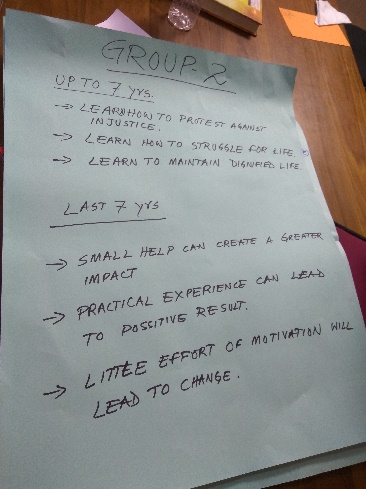 GROUP-2
UP TO 7 yrs.
→ LEARN HOW TO PROTEST AGAINST
INJUSTICE.
→ LEARN HOW TO STRUGGLE FOR LIFE.
→ LEARN TO MAINTAIN DIGNIFIED LIFE
LAST 7 yrs
→ SMALL HELP CAN CREATE A GREATER
IMPACT
→ PRACTICAL EXPERIENCE CAN LEAD
TO POSSITIVE RESULT.
→ LITTLE EFFORT OF MOTIVATION WILL
LEAD TO CHANGE.